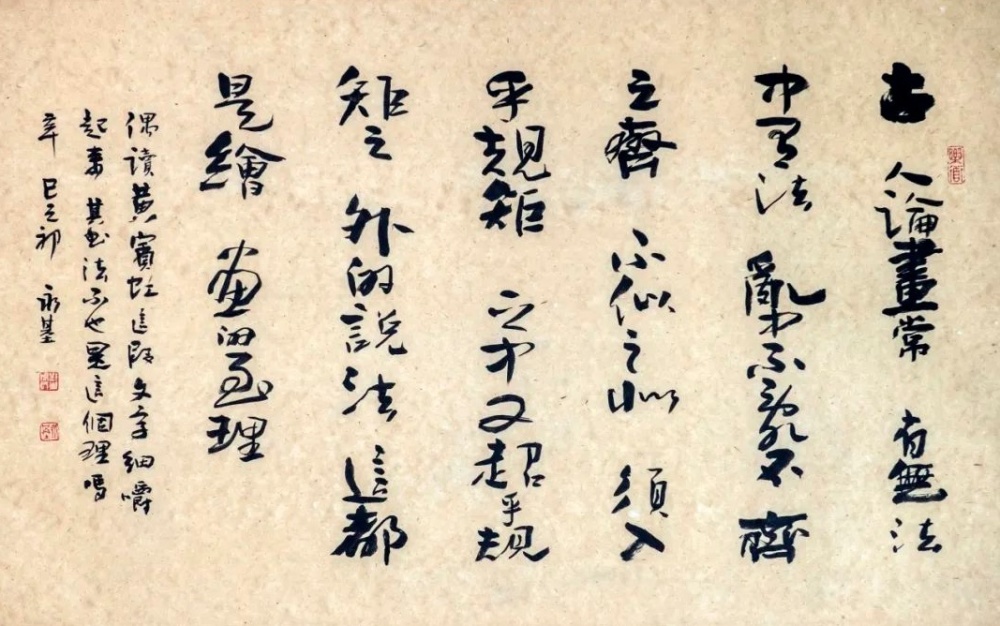 古人論畫常有無法
中有法亂中不亂不齊
之齊不似之似須入
乎規矩之中又超乎規
矩之外的說法這都
是繪画的至理
偶讀黃賓虹這段文字細嚼
起來其書法不也是這個理嗎
辛巳之初永基